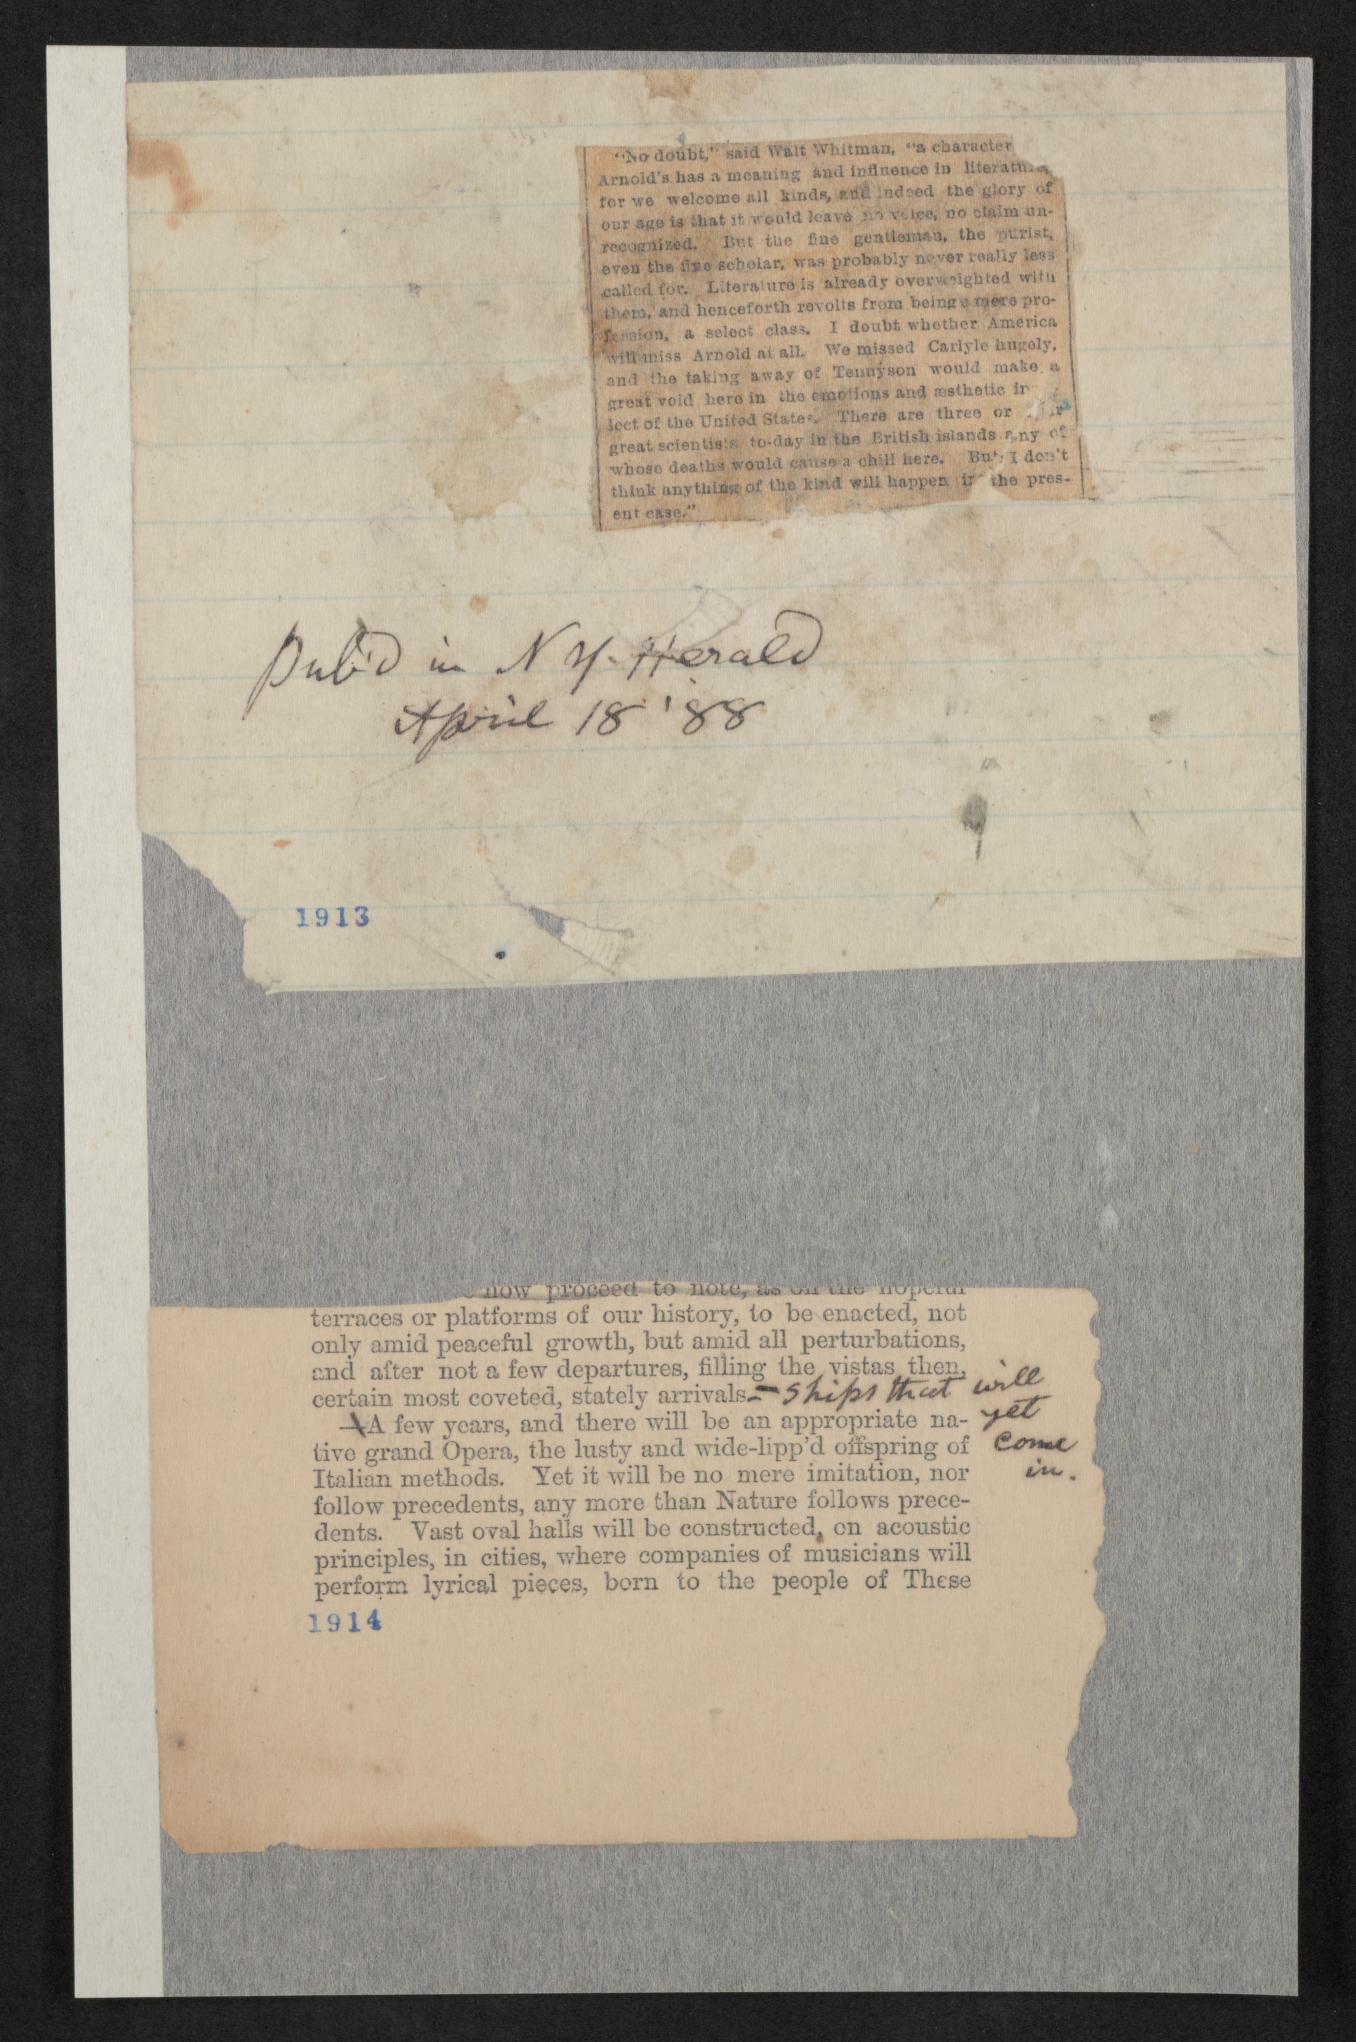 "No doubt," said Walt Whitman, "a character
Arnold's has a meaning and influence in literature,
for we welcome all kinds, and indeed the glory of
our age is that it would leave no voice, no claim un-
recognized. But the fine gentleman, the purist,
even the fine scholar, was probably never really less
called for. Literature is already overweighted with
them, and henceforth revolts from being a mere pro-
fession, a select class. I doubt whether America
will miss Arnold at all. We missed Carlyle hugely,
and the taking away of Tennyson would make a
great void here in the emotions and æsthetic
lect of the United States. There are three or
great scientists to-day in the British islands any of
whose deaths would cause a chill here. But I don't
think anything of the kind will happen in the pres-
ent case."
Pub'd in N Y. Herald
April 18 '88
1913
now proceed to note, as on the hopeful
terraces or platforms of our history, to be enacted, not
only amid peaceful growth, but amid all perturbations,
and after not a few departures, filling the vistas then,
certain most coveted, stately arrivals.— ships that will
A few years, and there will be an appropriate na- yet
tive grand Opera, the lusty and wide-lipp'd offspring of come
Italian methods. Yet it will be no mere imitation, nor in.
follow precedents, any more than Nature follows prece-
dents. Vast oval halls will be constructed, on acoustic
principles, in cities, where companies of musicians will
perform lyrical pieces, born to the people of These
1914